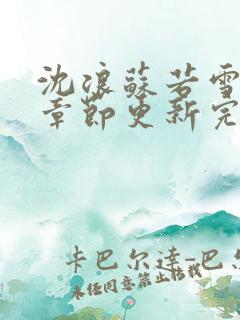 沈浪蘇若雪
章節更新完
卡巴尔達-巴尔
未经同意禁止转载